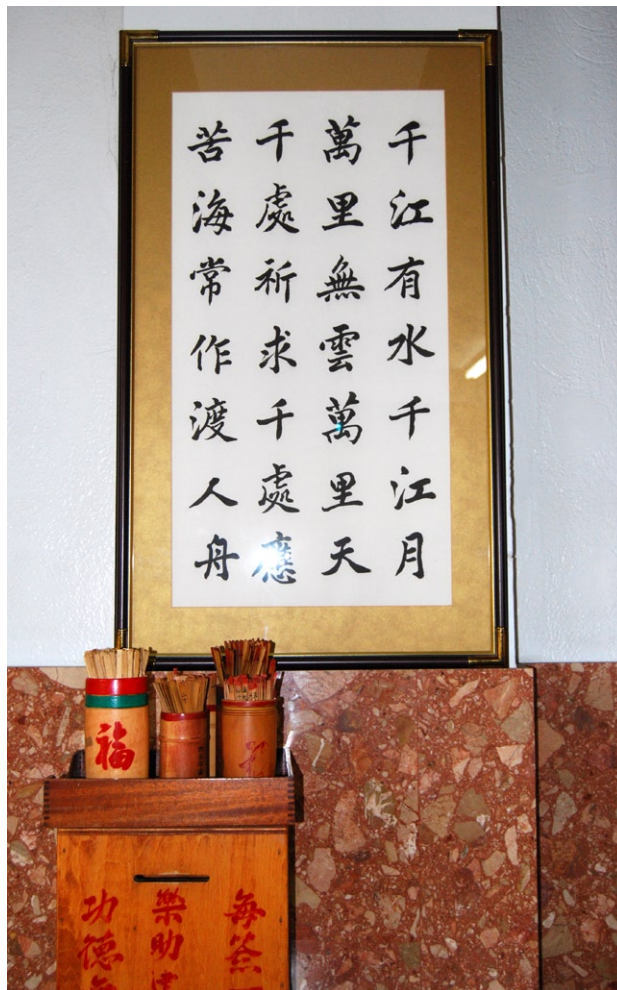 千江有水千江月
萬里無雲萬里天
千處祈求千處應
苦海常作渡人舟
福
每簽
樂助
功德